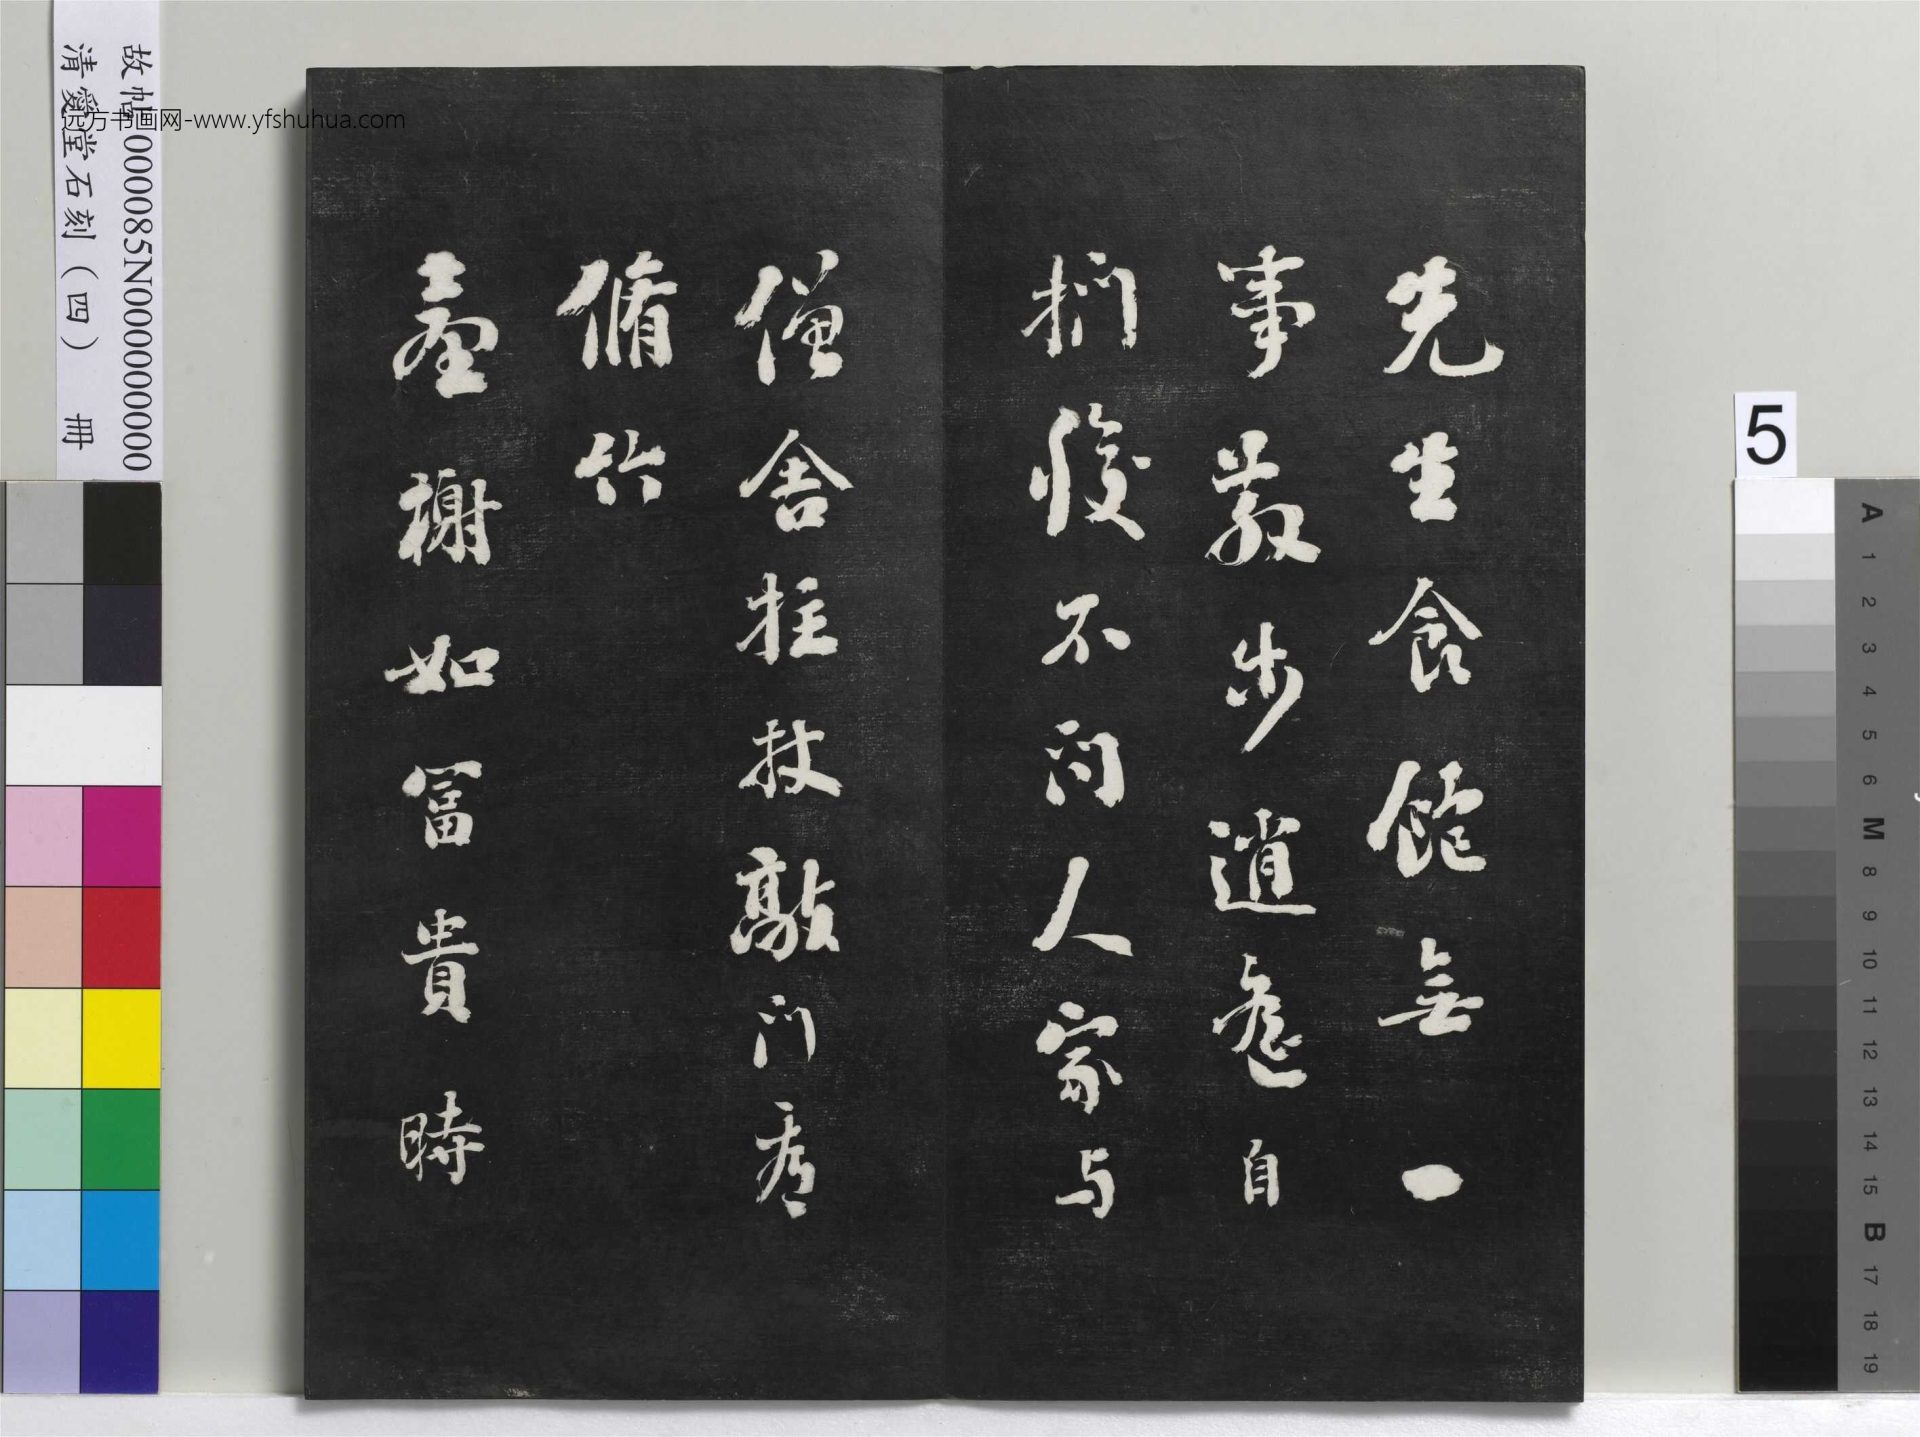 先生食飽無一
事散步逍遙自
捫腹不问人家与
僧舍拄杖敲门看
脩竹
臺榭如冨貴時
故帖000085N000000000
清愛堂石刻（四） 冊
远方书画网-www.yfshuhua.com
5
A
1
2
3
4
5
6
M
8
9
10
11
12
13
14
15
B
17
18
19